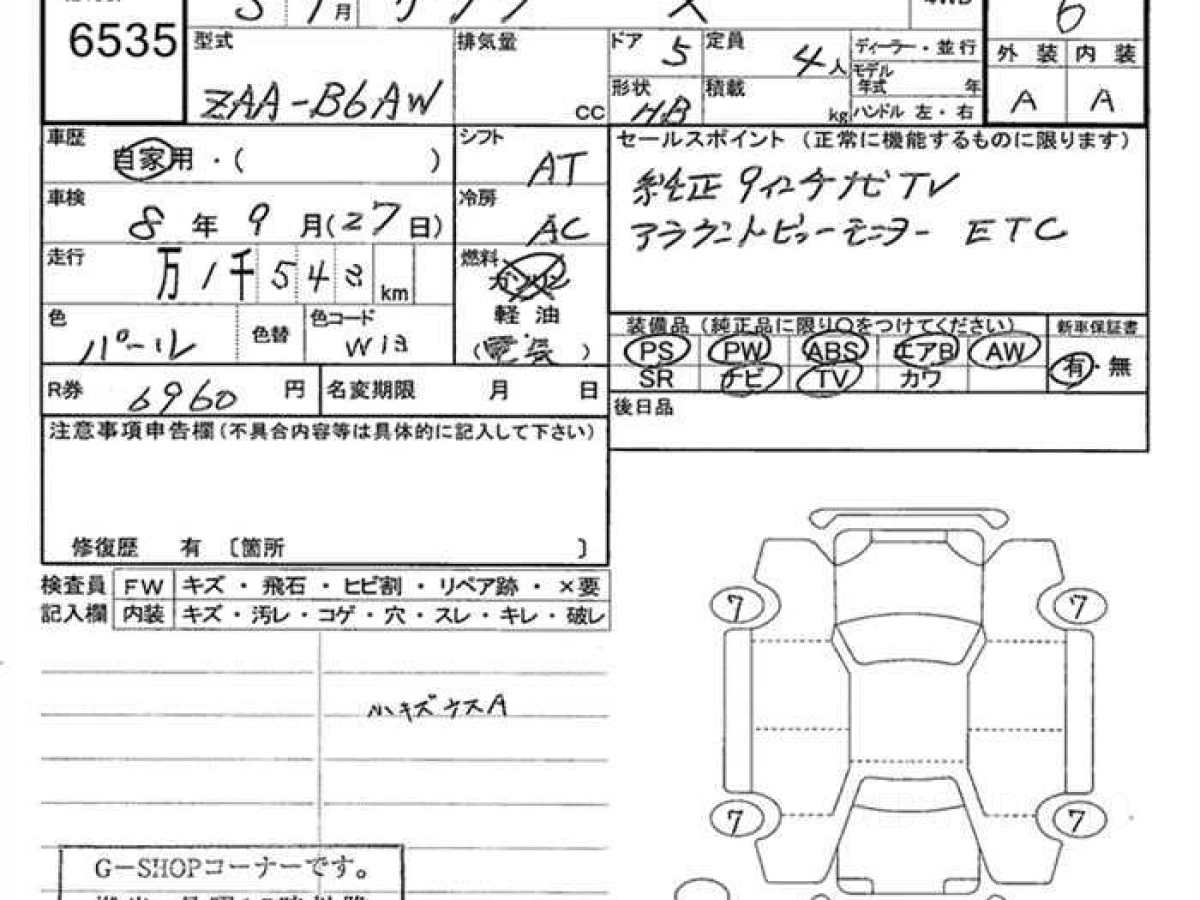 5 9月
4WD
6
6535
型式
排気量
ドア 5
定員 4人
ディーラー・並行
外装 内装
ZAA-B6AW
CC
形状 H.B
積載
kg
モデル年式 年
ハンドル 左・右
A A
車歴
自家用・( )
シフト
AT
セールスポイント (正常に機能するものに限ります)
純正 9インチナビ TV
アラウンドビューモニター ETC
車検
8年9月(27日)
冷房
AC
走行
万1千543km
燃料
ガソリン
軽油
(電気)
色
パール
色替
色コード
W13
装備品(純正品に限り○をつけてください)
新車保証書
PS PW ABS エアB AW
有・無
SR ナビ TV カワ
R券 6960 円
名変期限 月 日
後日品
注意事項申告欄(不具合内容等は具体的に記入して下さい)
修復歴 有 〔箇所 〕
検査員 FW キズ・飛石・ヒビ割・リペア跡・×要
記入欄 内装 キズ・汚レ・コゲ・穴・スレ・キレ・破レ
小キズウスA
7 7
7 7
G-SHOPコーナーです。